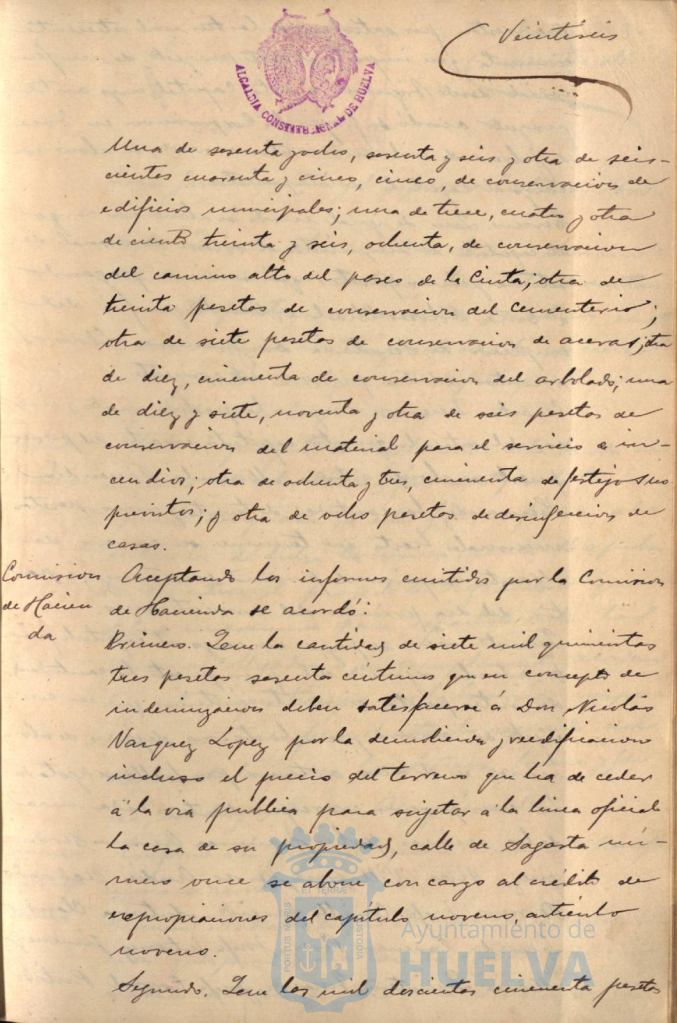 Veintiseis
ALCALDIA CONSTITUCIONAL DE HUELVA
Una de sesenta y ocho, sesenta y seis y otra de seis-
cientos cuarenta y cinco, cinco, de conservacion de
edificios municipales; una de trece, cuatro y otra
de ciento treinta y seis, ochenta, de conservacion
del camino alto del paseo de la Cinta; otra de
treinta pesetas de conservacion del Cementerio;
otra de siete pesetas de conservacion de aceras; otra
de diez, cincuenta de conservacion del arbolado; una
de diez y siete, noventa y otra de seis pesetas de
conservacion del material para el servicio de in-
cendios; otra de ochenta y tres, cincuenta de festejos im
previstos; y otra de ocho pesetas de desinfeccion de
casas.
Comision
de Hacien
da
Aceptando los informes emitidos por la Comision
de Hacienda se acordó:
Primero. Que la cantidad de siete mil quinientas
tres pesetas sesenta céntimos que en concepto de
indemnizacion deben satisfacerse á Don Nicolás
Vazquez Lopez por la demolicion y reedificacion
incluso el precio del terreno que ha de ceder
á la via publica para sujetar á la linea oficial
la casa de su propiedad, calle de Sagasta nú-
mero once se abone con cargo al crédito de
expropiaciones del capítulo noveno, artículo
noveno.
Segundo. Que las mil doscientas cincuenta pesetas
PORTUS MARIS ET TERRAE CUSTODIA
Ayuntamiento de
HUELVA